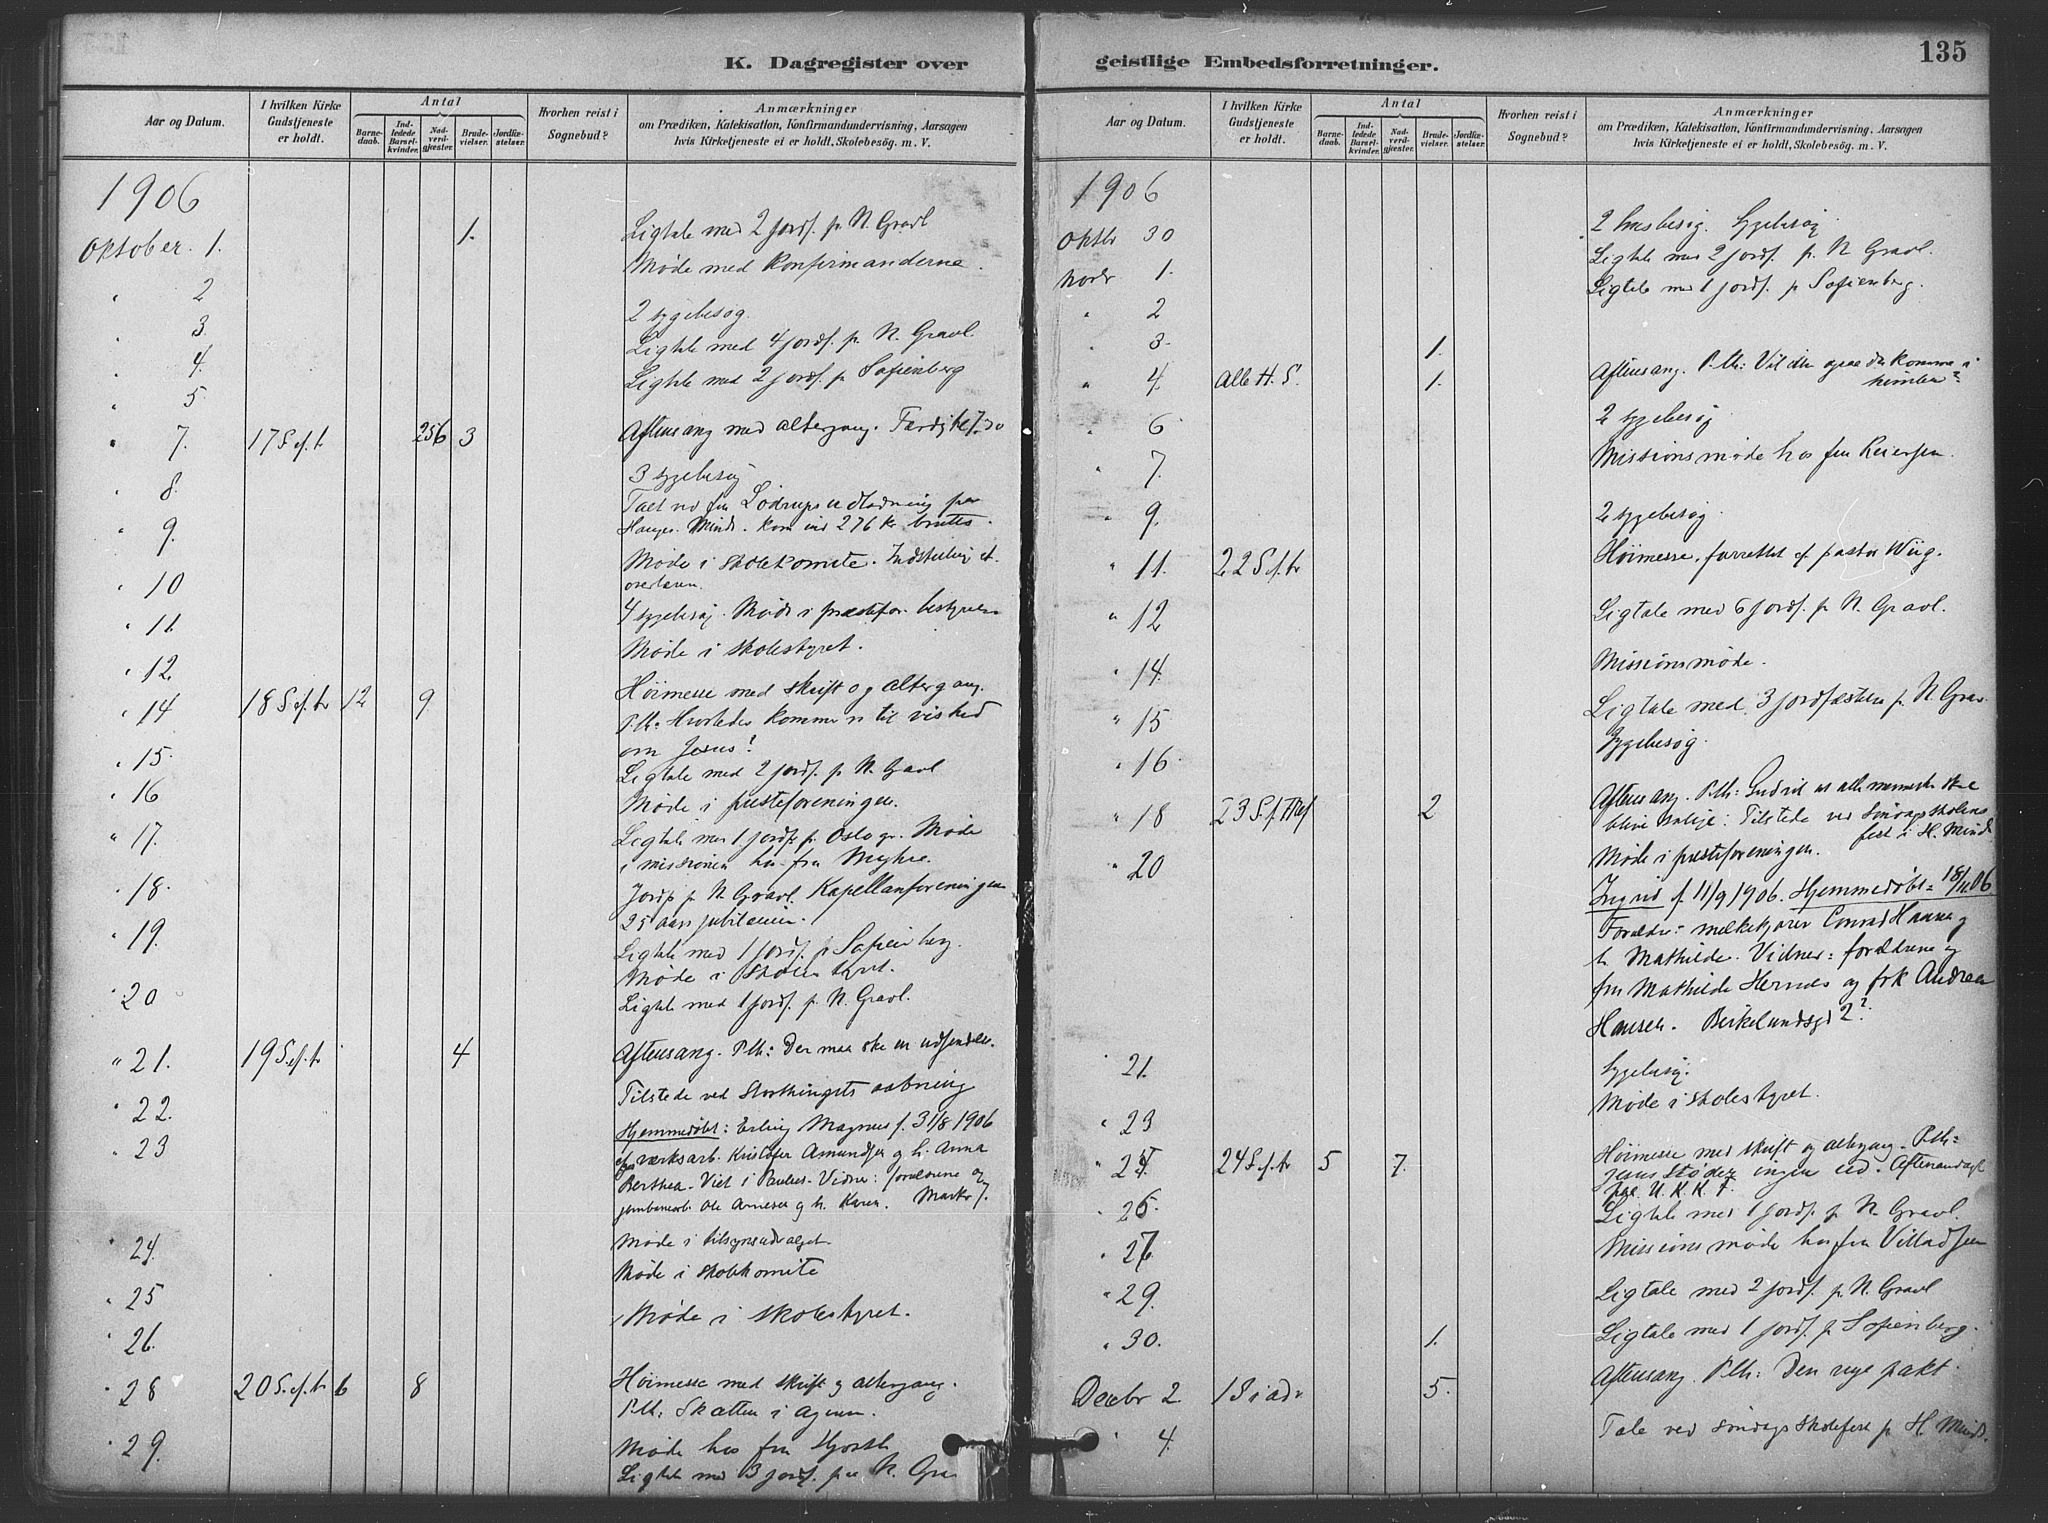 K. Dagregister over
Aar og Datum.
I hvilken Kirke Gudstjeneste er holdt.
Antal
Barnedaab.
Indledede Barselkvinder.
Nadverdgjester.
Brudevielser.
Jordfæstelser.
Hvorhen reist i Sognebud?
Anmærkninger
om Prædiken, Katekisation, Konfirmandundervisning, Aarsagen
hvis Kirketjeneste ei er holdt, Skolebesög. m. V.
1906
Oktober. 1. 1. Ligtale med 2 jordf. p. N. Gravl
Møde med konfirmanderne.
" 2
2 sygebesøg.
" 3. Ligtale med 4 jordf. p. N. Gravl.
" 4. Ligtale med 2 jordf. p Sofienberg
" 5
" 7. 17 S. e. f. tr 256 3 Aftensang med altergang. Færdig kl 7.30
" 8. 3 sygebesøg
Talt ved fru Lødrups udlodning paa
" 9. Hauges Minde. Kom ind 276 kr. brutto.
Møde i skolekomite. Indstilling af
" 10 overlærer.
" 11 4 sygebesøg. Møde i prestefor. bestyrelse
Møde i skolestyret.
" 12
" 14 18 S. e. f. tr 12 9 Høimesse med skrift og altergang.
P.th: Hvorledes komme vi til vished
om Jesus?
" 15. Ligtale med 2 jordf. p. N. Gravl
" 16 Møde i presteforeningen.
" 17. Ligtale med 1 jordf. p. Oslo gr. Møde
i missionen hos fru Myhre.
" 18. Jordf p N. Gravl. Kapellanforeningens
25 aars jubilæum.
" 19. Ligtale med 1 jordf. p Sofienberg.
Møde i skolestyret.
" 20 Ligtale med 1 jordf. p. N. Gravl.
" 21. 19 S. e. f. tr 4 Aftensang. P.th: Der maa ske en udsendelse.
Tilstede ved Storthingets aabning
" 22.
" 23 Hjemmedøbt: Erling Magnus f. 31/8 1906
af værksarb. Kristofer Amundsen og h. Anna
Berthea. Viet i Paulus. Vidner: forældrene og
jernbanearb. Ole Arnesen og h. Karen. Markv 7.
" 24. Møde i tilsynsudvalget.
Møde i skolekomite
" 25
Møde i skolestyret.
" 26.
" 28 20 S. e. f. tr 6 8 Høimesse med skrift og altergang.
P.th: Skatten i ageren.
" 29. Møde hos fru Hjorth
Ligtale med 3 jordf. paa N. Gra
geistlige Embedsforretninger.
135
Aar og Datum.
I hvilken Kirke Gudstjeneste er holdt.
Antal
Barnedaab.
Indledede Barselkvinder.
Nadverdgjester.
Brudevielser.
Jordfæstelser.
Hvorhen reist i Sognebud?
Anmærkninger
om Prædiken, Katekisation, Konfirmandundervisning, Aarsagen
hvis Kirketjeneste ei er holdt, Skolebesög. m. V.
1906
2 husbesøg. Sygebesøg
Oktbr 30 Ligtale med 2 jordf. p. N. Gravl.
Novbr 1. Ligtale med 1 jordf. p Sofienberg.
" 2
" 3. 1.
" 4. Alle H. S. 1. Aftensang. P.th: Vil du ogsaa komme i
himlen?
" 6 2 sygebesøg
" 7. Missionsmøde hos fru Reiersen.
" 9. 2 sygebesøg
" 11. 22 S. e. f. tr Høimesse, forrettet af pastor Wiig.
" 12 Ligtale med 6 jordf. p N. Gravl.
" 14. Missionsmøde.
" 15 Ligtale med 3 jordfæstelser p. N. Grav.
" 16 Sygebesøg.
" 18 23 S. f. tr 2 Aftensang. P.th: Gud vil at alle mennesker skal
blive salige. Tilstede ved søndagsskolens
fest i H. Minde
" 20 Møde i presteforeningen.
Ingrid f. 11/9 1906. Hjemmedøbt 18/11 06.
Forældre: melkekjører Conrad Hansen og
h. Mathilde. Vidner: forældrene og
fru Mathilde Hernes og frk Andrea
Hansen. Birkelundsgd 2?
" 21. Sygebesøg.
" 23 Møde i skolestyret.
" 25 24 S. e. f. tr 5 7. Høimesse med skrift og altergang. P.th:
Jesus støder ingen ud. Aftenandagt
paa U. K. K. F.
" 26. Ligtale med 1 jordf. p N. Gravl.
" 27. Missionsmøde hos fru Villadsen
" 29. Ligtale med 2 jordf. p. N. Gravl
" 30. 1. Ligtale med 1 jordf. p Sofienberg.
Decbr 2. 1 S i adv 5. Aftensang. P.th: Den nye pakt.
" 4. Tale ved søndagsskolefest p H Minde.